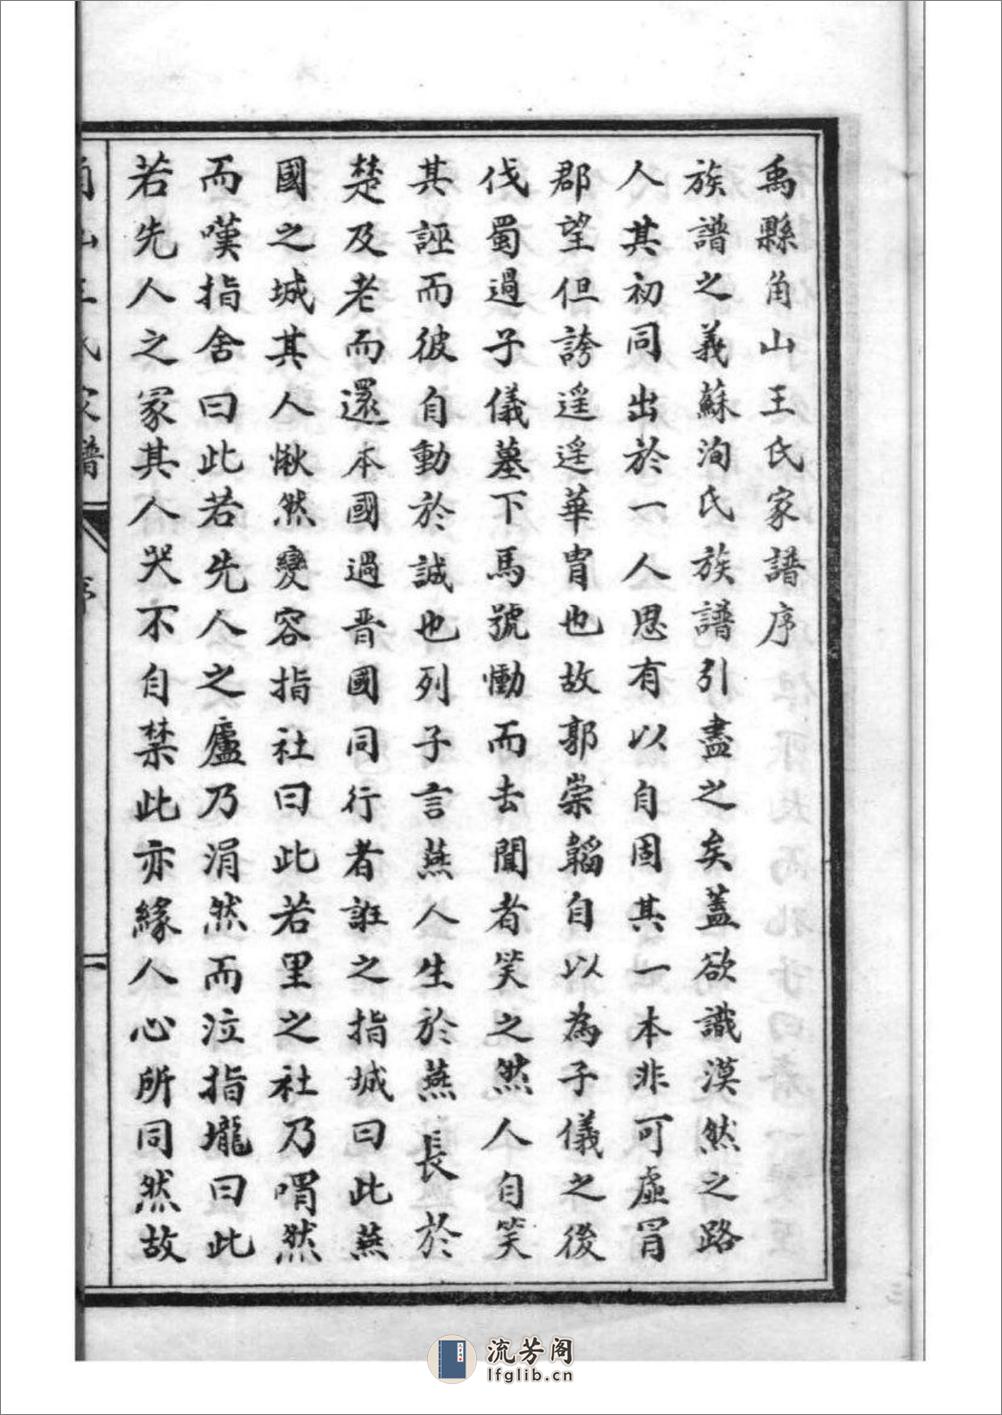 禹縣角山王氏家譜序
族譜之義蘇洵氏族譜引盡之矣蓋欲識漠然之路
人其初同出於一人思有以自固其一本非可虛冒
郡望但誇遥遥華胄也故郭崇韜自以為子儀之後
伐蜀過子儀墓下馬號慟而去聞者笑之然人自笑
其誣而彼自動於誠也列子言燕人生於燕長於
楚及老而還本國過晋國同行者誑之指城曰此燕
國之城其人愀然變容指社曰此若里之社乃喟然
而嘆指舍曰此若先人之廬乃涓然而泣指壠曰此
若先人之冢其人哭不自禁此亦緣人心所同然故
角山王氏家譜 序 一
流芳阁
lfglib.cn